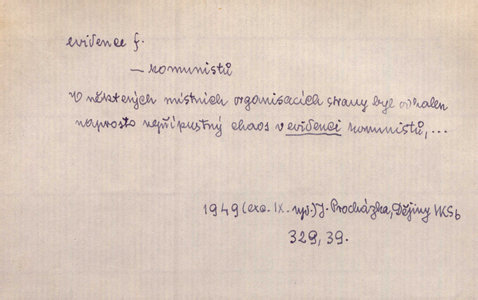 evidence f.
— komunistů
V některých místních organisacích strany byl odhalen
naprosto nepřípustný chaos v evidenci komunistů, ...
1949 (exc. IX. vyd.) J. Procházka, Dějiny VKSb
329, 39.